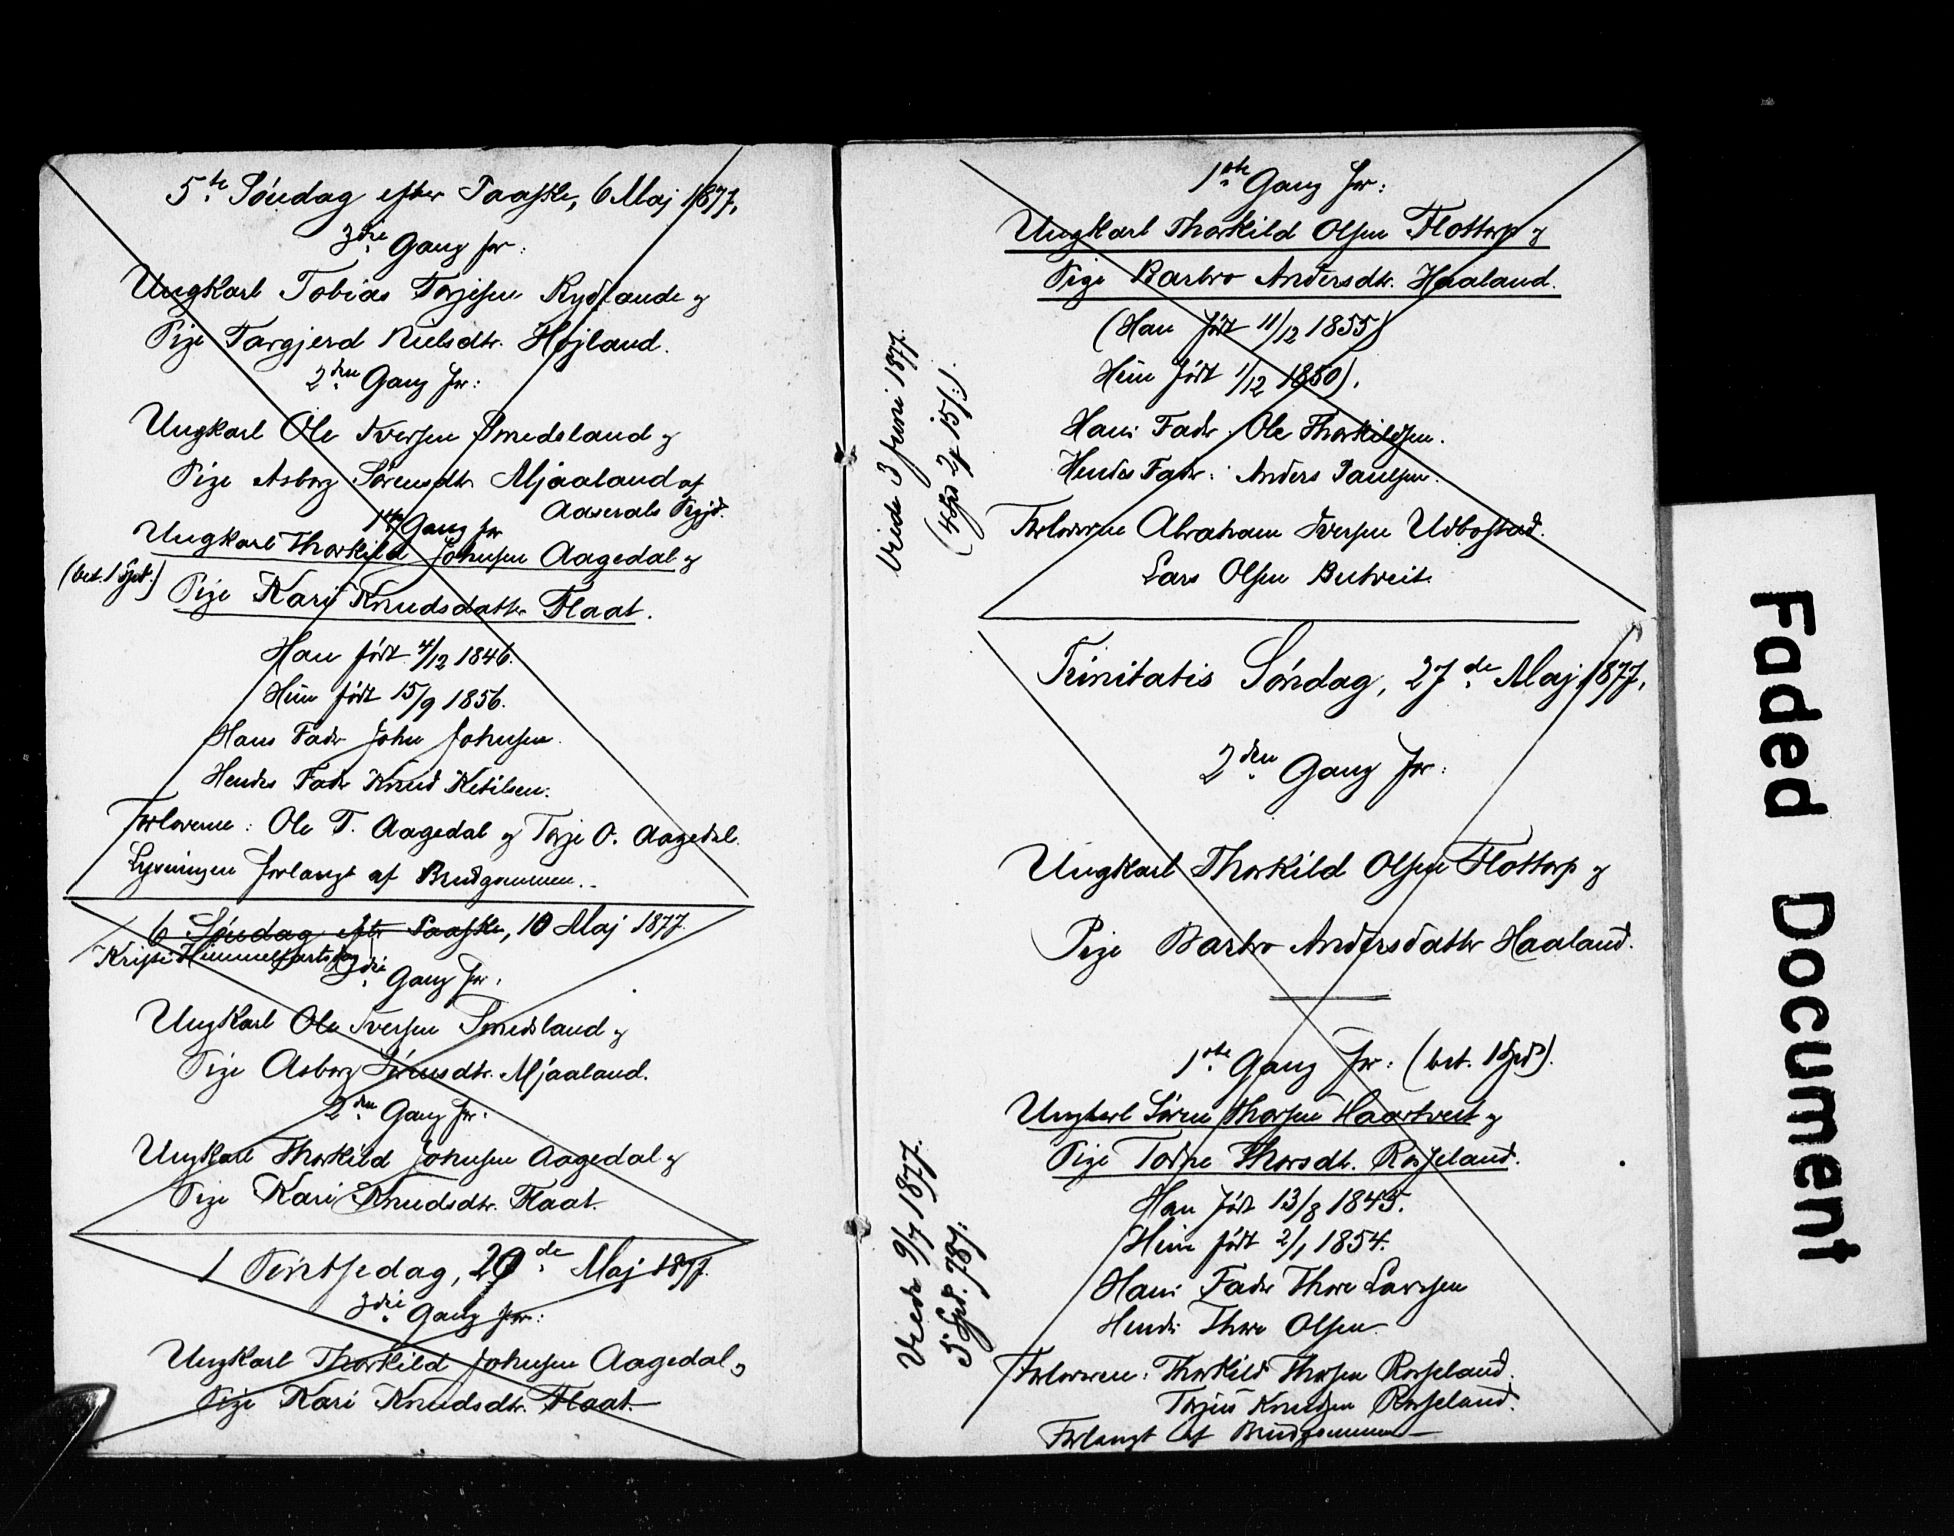 5te Søndag efter Paaske, 6 Maj 1877,
3die Gang for:
Ungkarl Tobias Torjesen Rydlande og
Pige Targjerd Nielsdtr. Højland.
2den Gang for:
Ungkarl Ole Iversen Smedsland og
Pige Asborg Sørensdtr Mjaaland af
Aaserals Prgjd.
1ste Gang for
Ungkarl Thorkild Johnsen Aagedal og
(bet. 1 Spd.)
Pige Kari Knudsdatter Flaat.
Han født 4/12 1846.
Hun født 15/9 1856.
Hans Fader John Johnsen.
Hendes Fader Knud Ketilsen.
Forlovere: Ole T. Aagedal og Torje O. Aagedal.
Lysningen forlangt af Brudgommen.
6 Søndag efter Paaske, 10 Maj 1877.
Kristi Himmelfartsdag
3die Gang for:
Ungkarl Ole Iversen Smedsland og
Pige Asborg Sørensdtr. Mjaaland.
2den Gang for:
Ungkarl Thorkild Johnsen Aagedal og
Pige Kari Knudsdtr. Flaat.
1 Pintsedag, 20de Maj 1877.
3die Gang for:
Ungkarl Thorkild Johnsen Aagedal og
Pige Kari Knudsdtr. Flaat.
1ste Gang for:
Ungkarl Thorkild Olsen Flottorp og
Pige Barbro Andersdtr. Haaland.
(Han født 11/12 1855)
Hun født 1/12 1850).
Hans Fader Ole Thorkildsen.
Hendes Fader: Anders Paulsen.
Forloverne Abraham Iversen Udbostad.
Lars Olsen Butveit
Viede 3 Juni 1877.
Trinitatis Søndag, 27de Maj 1877,
2den Gang for:
Ungkarl Thorkild Olsen Flottorp og
Pige Barbro Andersdatter Haaland.
1ste Gang for: (bet. 1 Spd).
Ungkarl Søren Thorsen Haartveit og
Pige Thorsdt. Rosseland.
Han født 13/8 1845.
Hun født 2/1 1854.
Hans Fader Thore Larssen
Hendes Thore Olsen
Forlovere: Thorkild Thorsen Rosseland.
Torjus Knudsen Rosseland.
Forlangt af Brudgommen
Viede 9/7 1877.
Faded Document